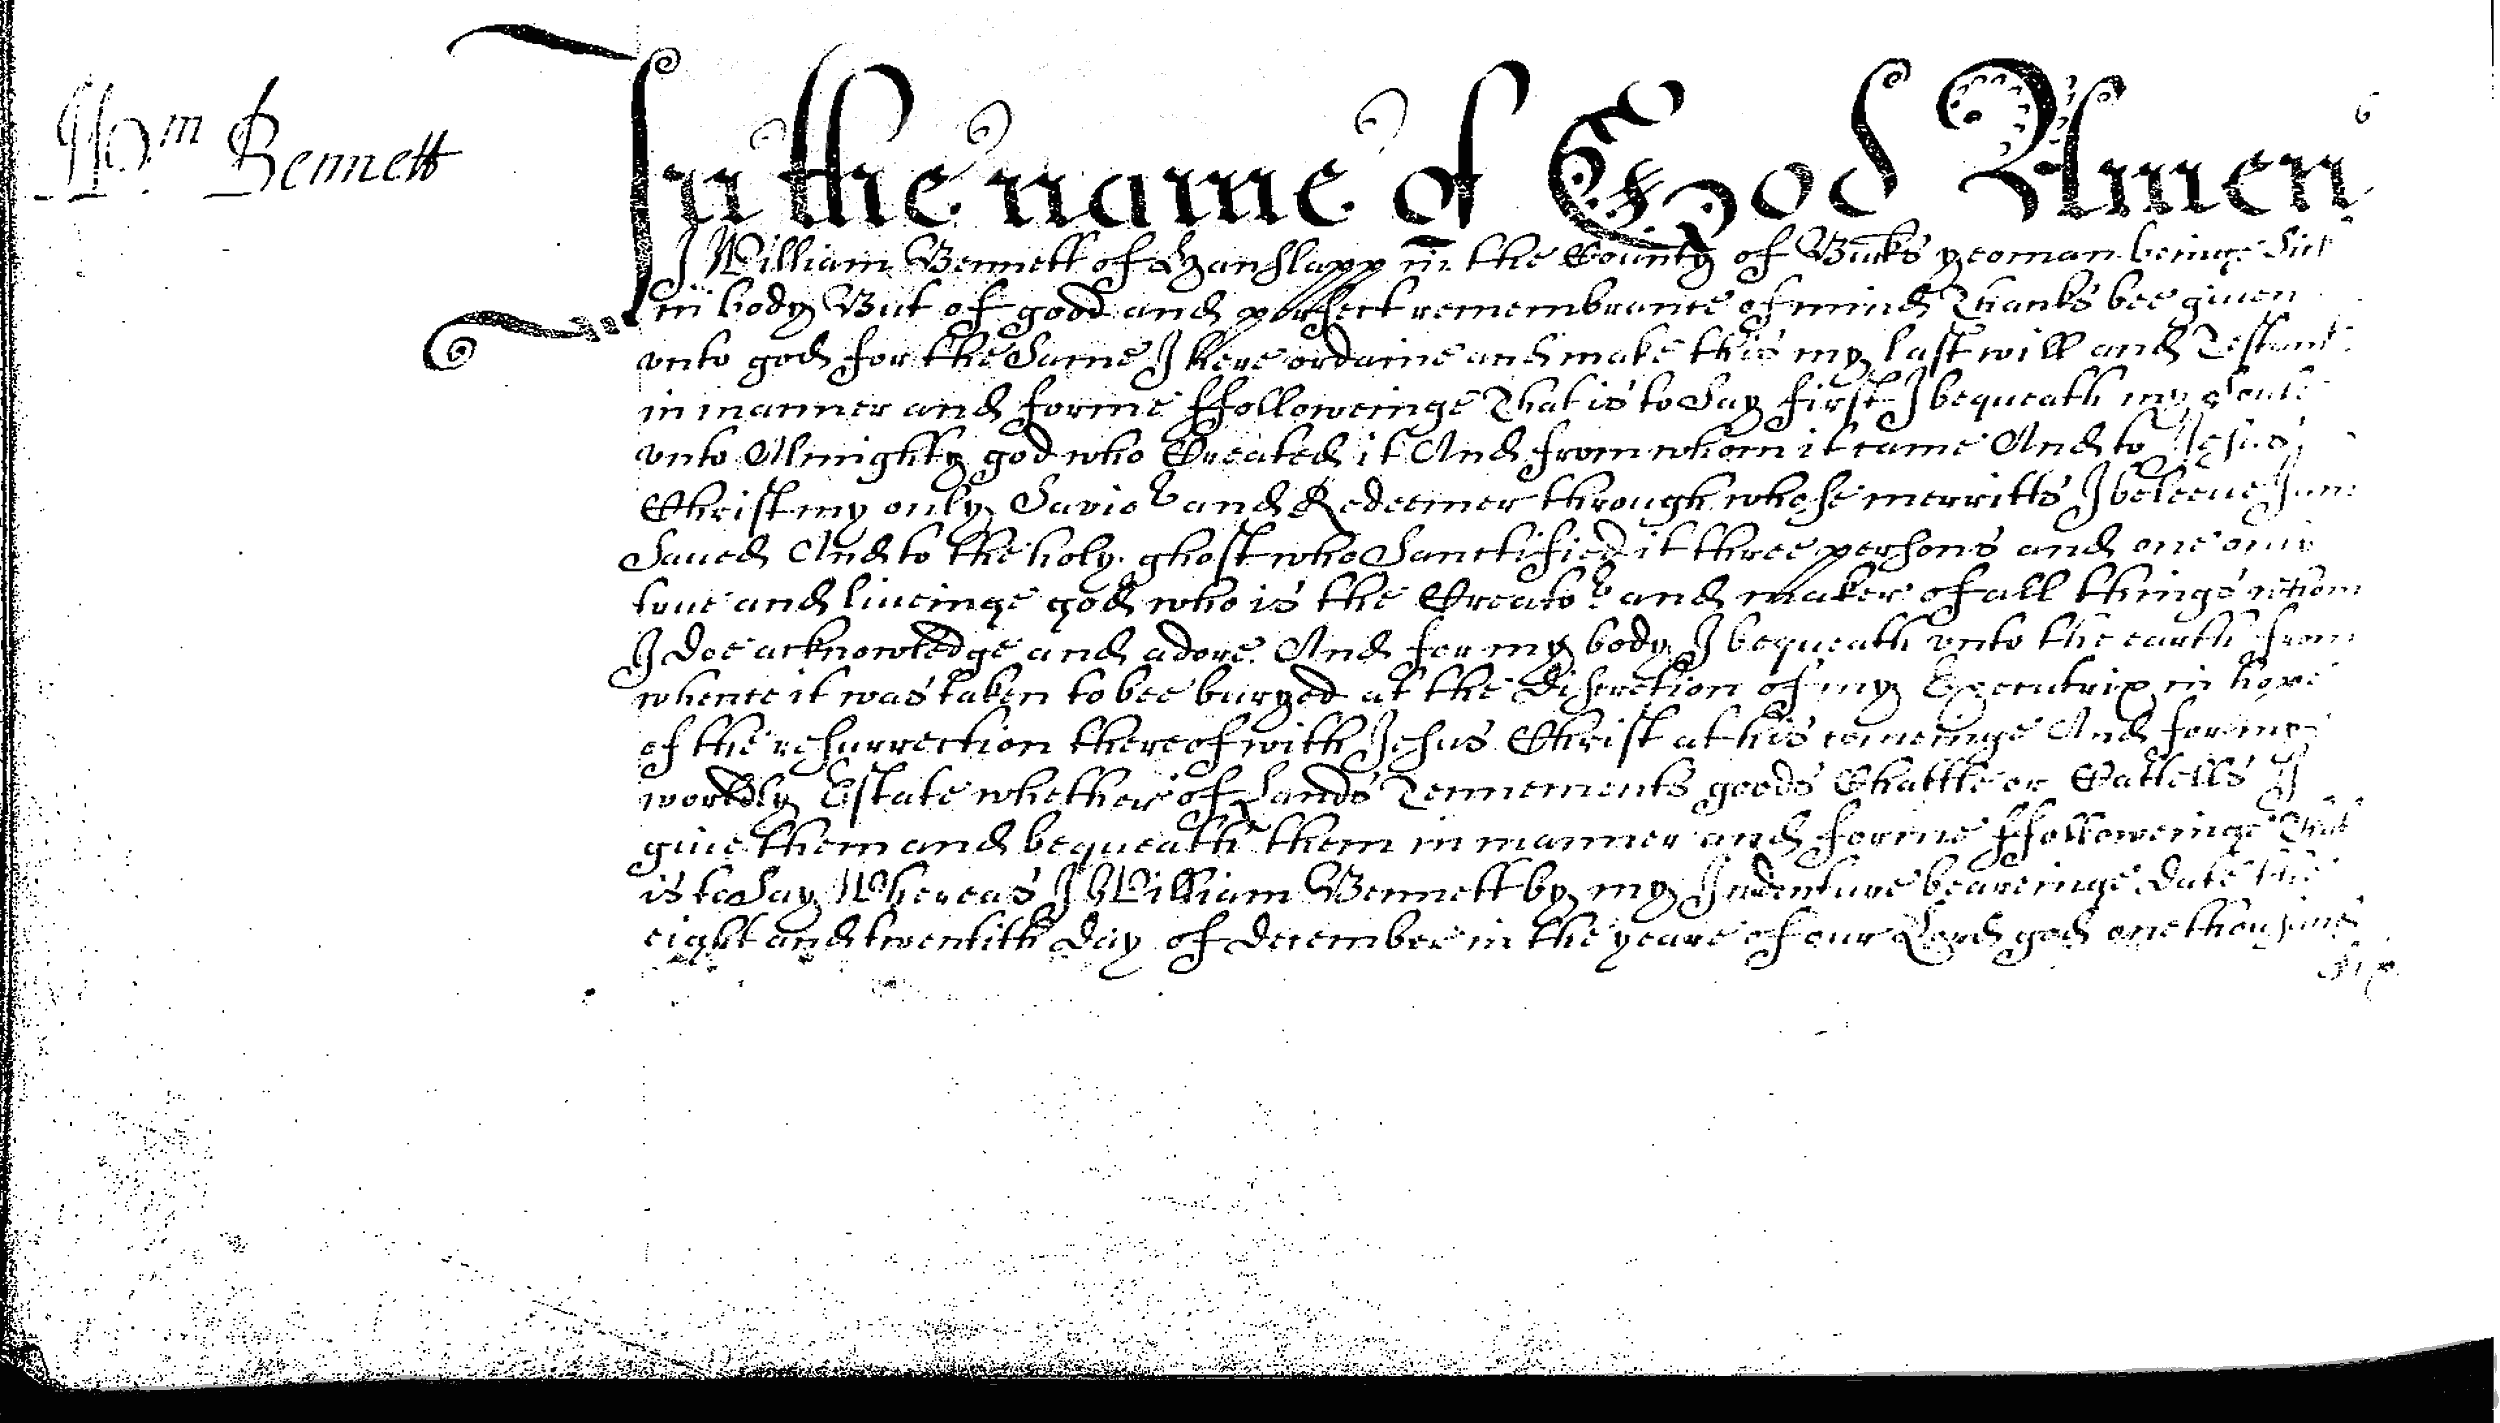 Wm Bennett
In the name of God Amen
I William Bennett of Hanslapp in the County of Bucks yeoman beinge Sick
in body But of good and perfect remembrance of mind Thanks bee given
vnto god for the Same I here ordaine and make this my last will and Testamt
in manner and forme ffolloweinge That is to Say first I bequeath my Soule
vnto Almighty god who Created it And from whom it came And to Jesus
Christ my only Savior and Redeemer through whose merritts I beleeue I am
Saued And to the holy ghost who Sanctified it three persons and one onie
true and liueinge god who is the Creator and maker of all things whom
I doe acknowledge and adore And for my body I bequeath vnto the earth from
whence it was taken to bee buryed at the Discretion of my Executrix in hope
of the resurrection thereof with Jesus Christ at his comeinge And for my
worldly Estate whether of Lands Tennements goods Chattle or Cattells I
giue them and bequeath them in manner and forme ffolloweinge That
is to Say Whereas I William Bennett by my Indenture beareinge Date the
eight and twentith Day of December in the yeare of our Lord god one thousand
Six